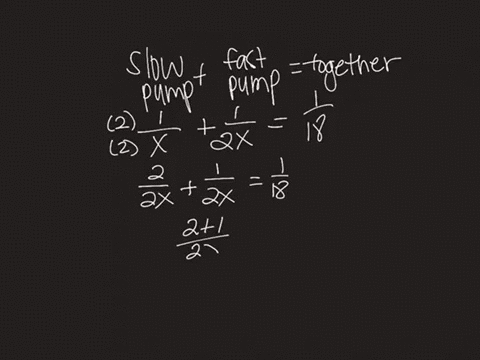 slow pump + fast pump = together
(2) 1/(2) x + 1/2x = 1/18
2/2x + 1/2x = 1/18
2+1/2